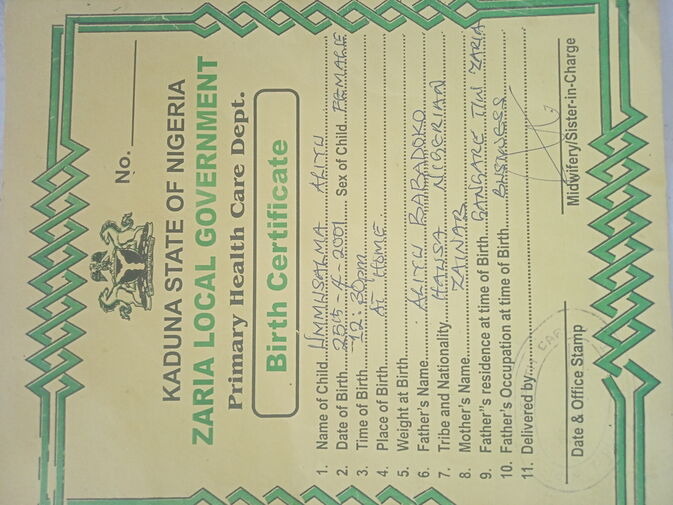 No.
KADUNA STATE OF NIGERIA
ZARIA LOCAL GOVERNMENT
Primary Health Care Dept.
Birth Certificate
1. Name of Child UMMUSALMA ALIYU
2. Date of Birth 25th-4-2001 Sex of Child FEMALE
3. Time of Birth 12:30pm
4. Place of Birth AT HOME
5. Weight at Birth
6. Father's Name ALIYU BABADOKO
7. Tribe and Nationality HAUSA NIGERIAN
8. Mother's Name ZAINAB
9. Father"s residence at time of Birth GANGARE T/W ZARIA
10. Father's Occupation at time of Birth BUSINESS
11. Delivered by
Date & Office Stamp Midwifery/Sister-in-Charge